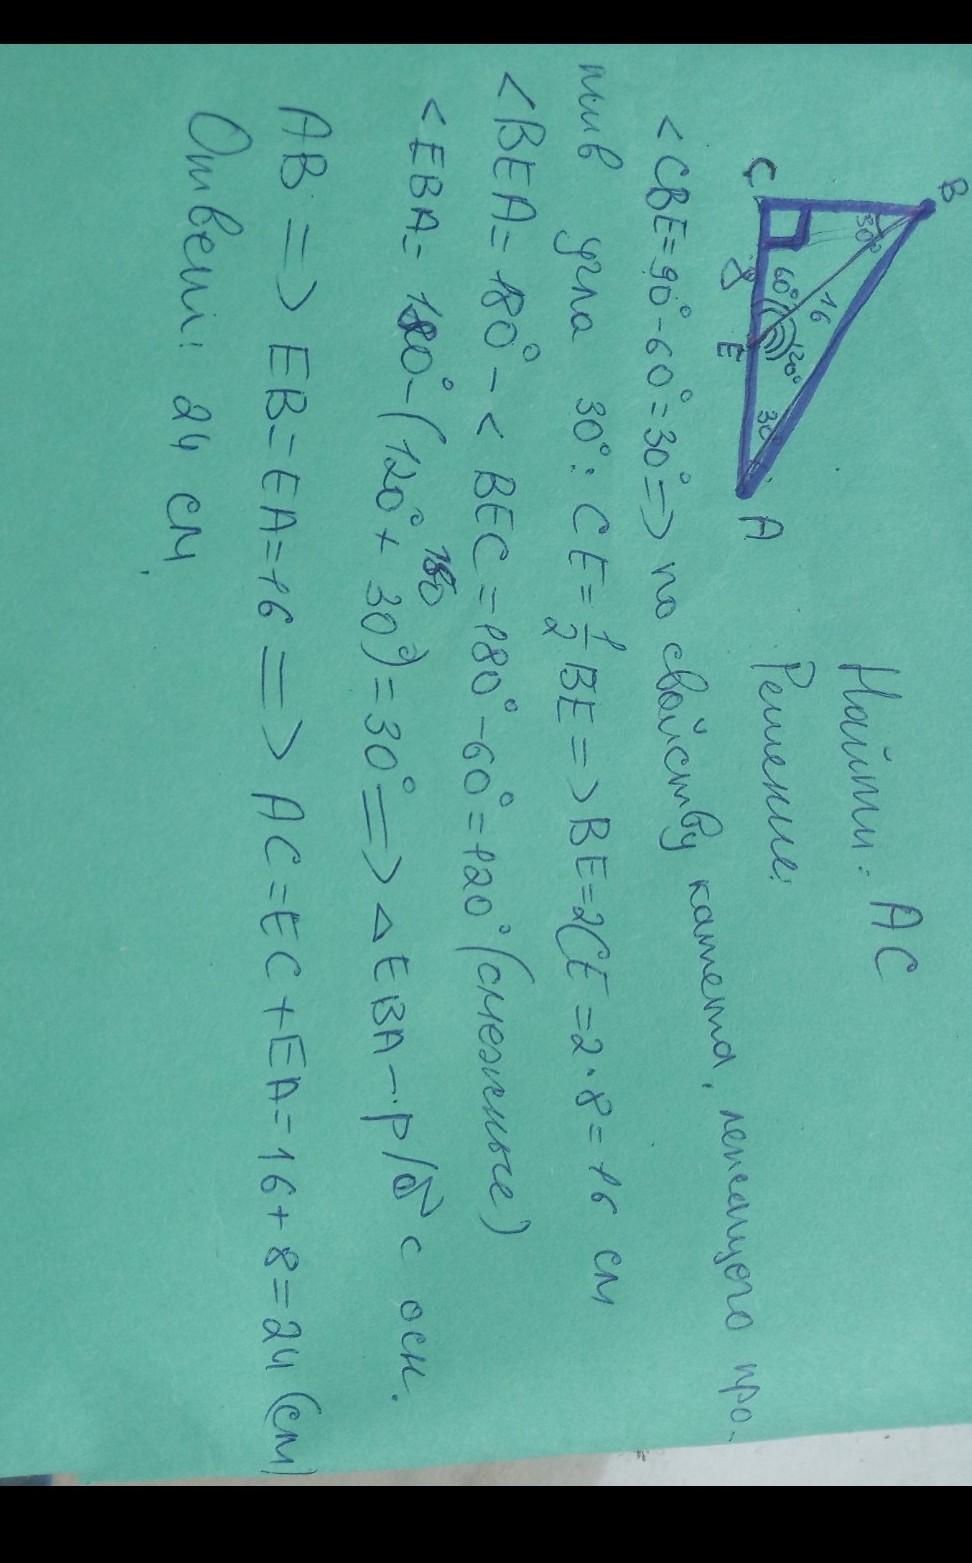 B
30°
16
C
60°
8
120°
E
30°
A
Найти: AC
Решение:
<CBE=90°-60°=30°=> по свойству катета, лежащего про-
тив угла 30°: CE=1/2BE=>BE=2CE=2·8=16 см
<BEA=180°-<BEC=180°-60°=120° (смежные)
180
<EBA=180°-(120°+30°)=30°=>△EBA-р/б с осн.
AB=>EB=EA=16=>AC=EC+EA=16+8=24 (см)
Ответ: 24 см.